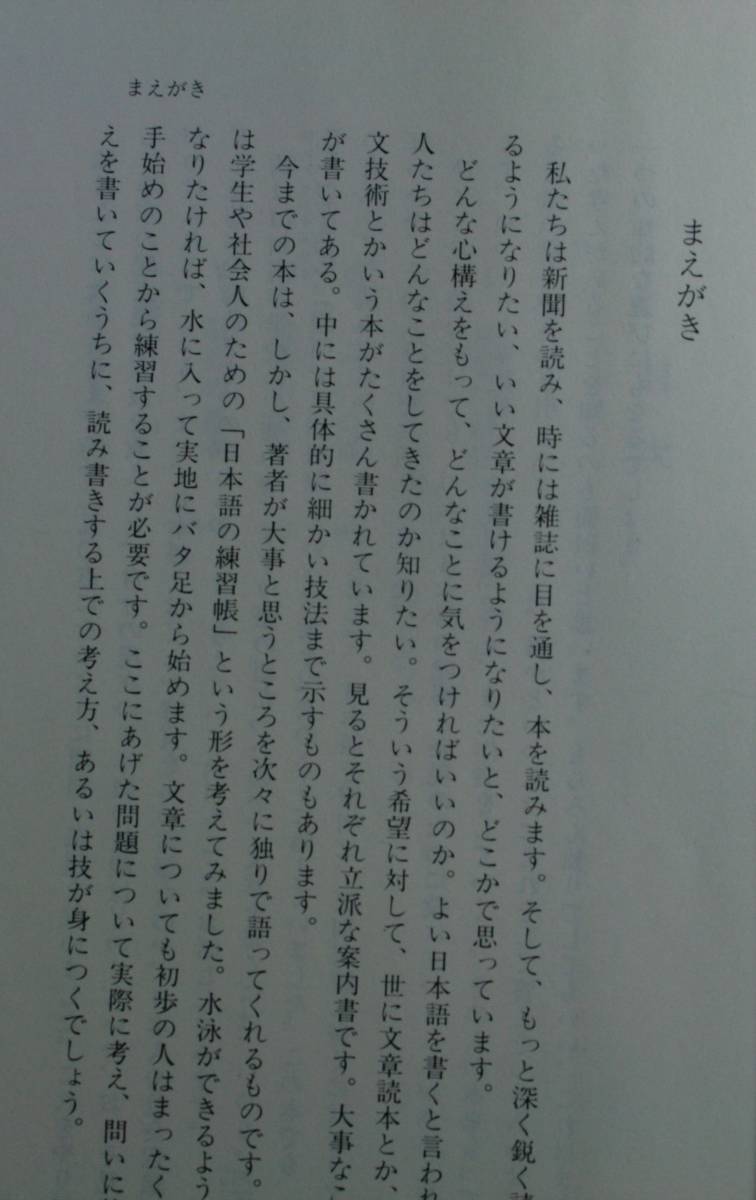 まえがき
私たちは新聞を読み、時には雑誌に目を通し、本を読みます。そして、もっと深く鋭く
るようになりたい、いい文章が書けるようになりたいと、どこかで思っています。
どんな心構えをもって、どんなことに気をつければいいのか。よい日本語を書くと言われ
人たちはどんなことをしてきたのか知りたい。そういう希望に対して、世に文章読本とか、
文技術とかいう本がたくさん書かれています。見るとそれぞれ立派な案内書です。大事なこ
が書いてある。中には具体的に細かい技法まで示すものもあります。
今までの本は、しかし、著者が大事と思うところを次々に独りで語ってくれるものです。
は学生や社会人のための「日本語の練習帳」という形を考えてみました。水泳ができるよう
なりたければ、水に入って実地にバタ足から始めます。文章についても初歩の人はまったく
手始めのことから練習することが必要です。ここにあげた問題について実際に考え、問いに
えを書いていくうちに、読み書きする上での考え方、あるいは技が身につくでしょう。
まえがき